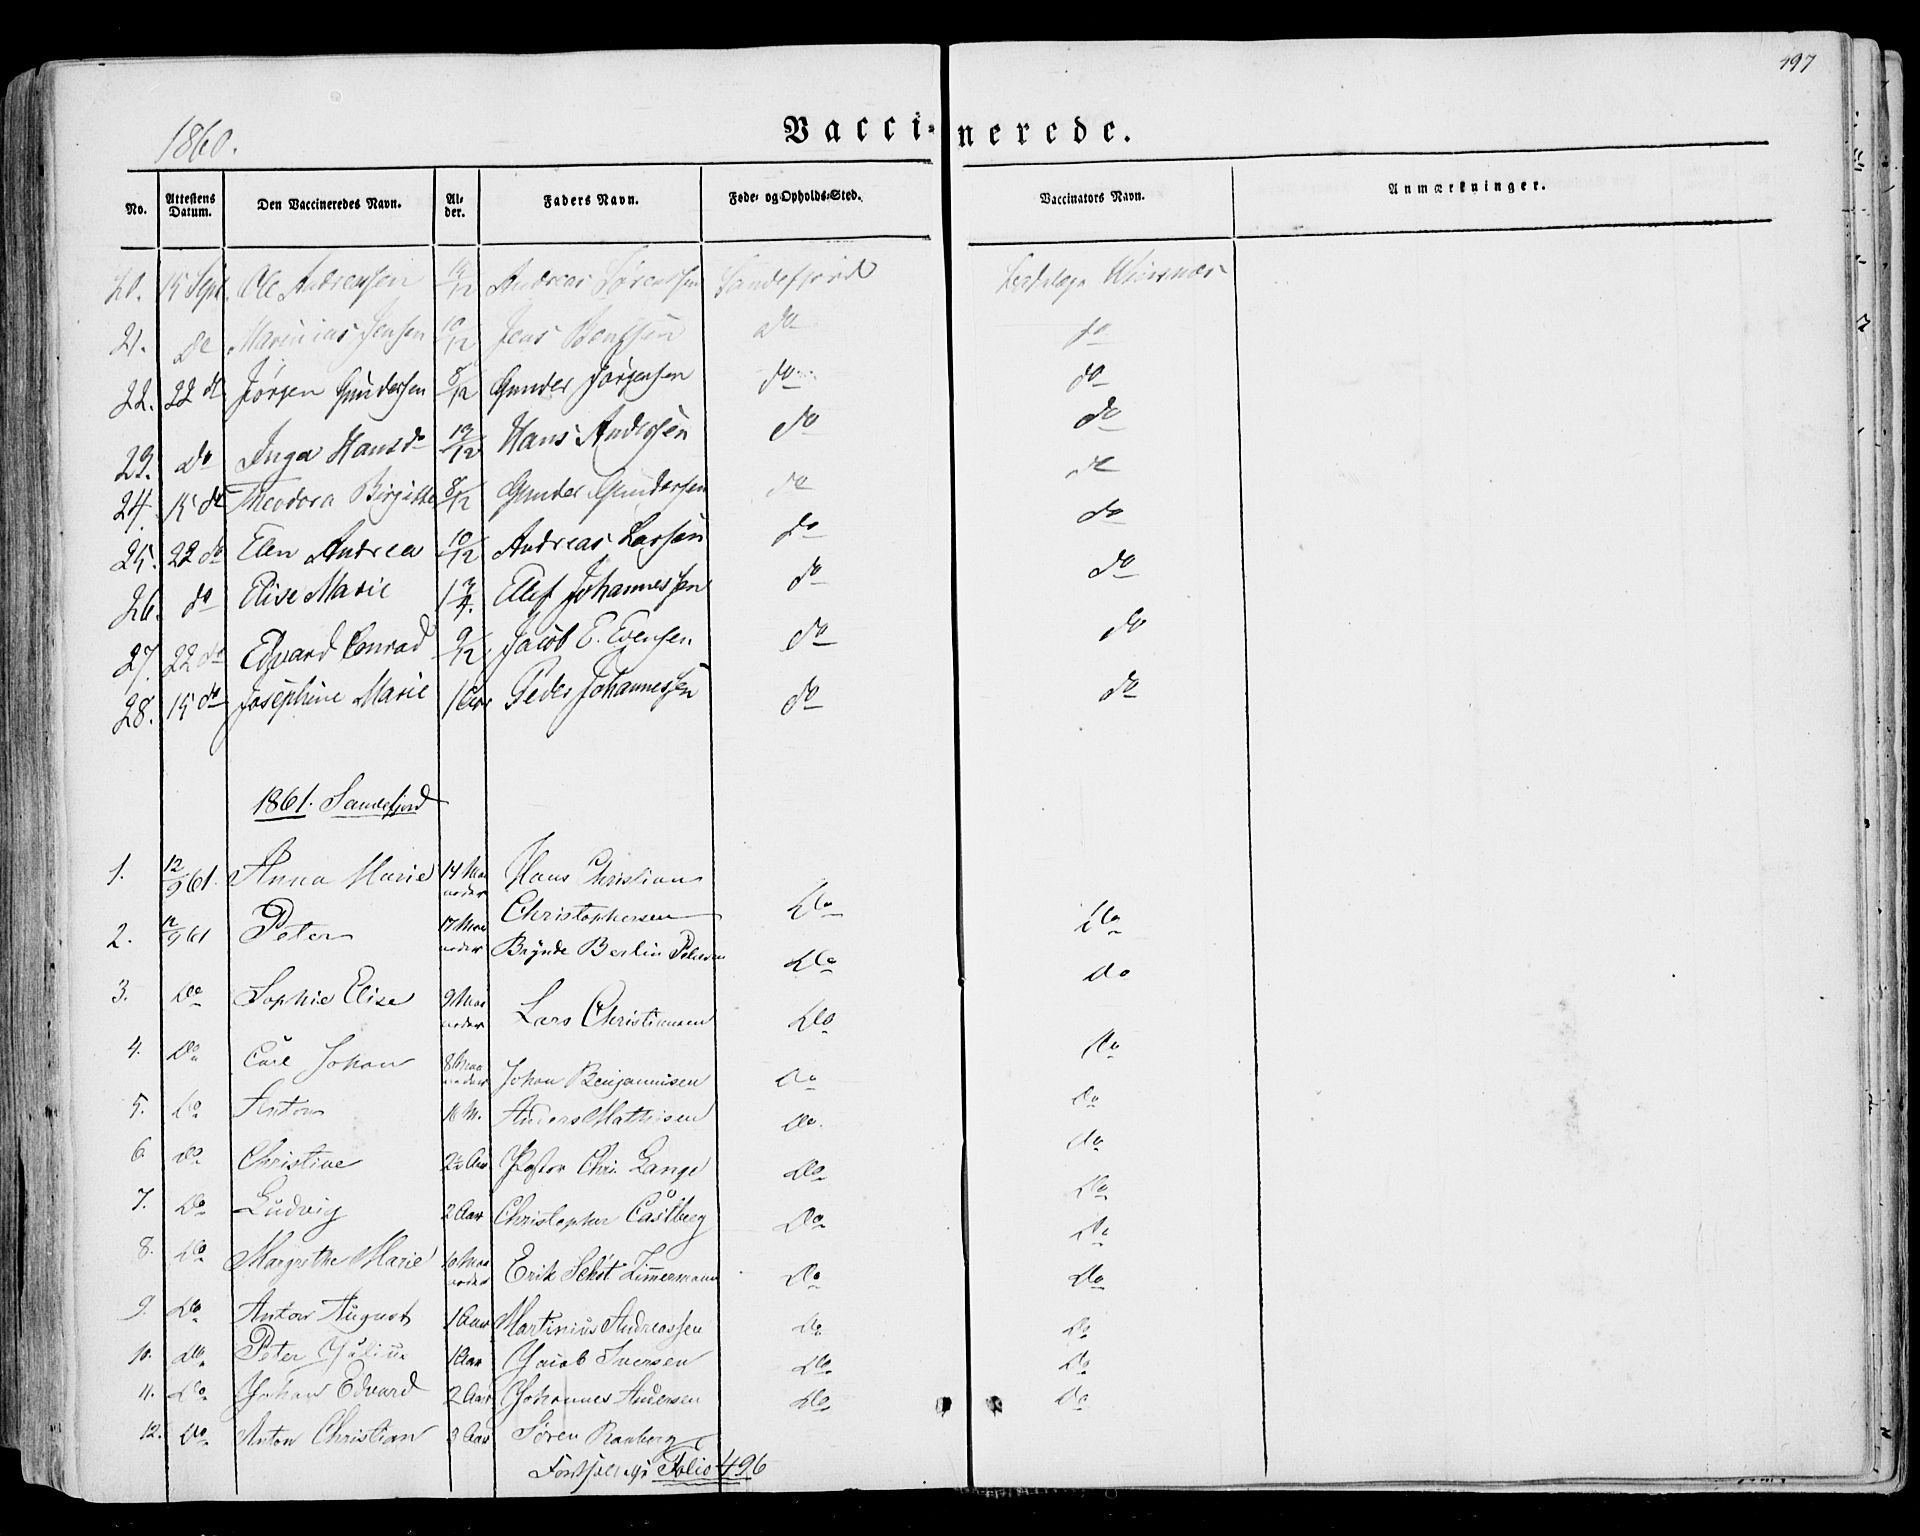 497
1860.
Vaccinerede.
No. Attestens Datum. Den Vaccineredes Navn. Alder. Faders Navn. Føde- og Opholds-Sted. Vaccinators Navn. Anmærkninger.
20. 15 Sept. Ole Andreassen 14/12 Andreas Sørenssen Sandefjord
21. do Marinius Jensen 10/12 Jens do do
22. 22 do Jørgen Gundersen 8/12 Gunder Jørgensen do do
23. do Inga Hansd 13/12 Hans Andersen do do
24. 15 do Theodora Birgitte 8/12 Gunder Gundersen do do
25. 22 do Elen Andrea 10/12 Andreas Larsen do do
26. do Elise Marie 1 3/4. Ellef Johannessen do do
27. 22 do Edvard Conrad 9/12 Jacob E. Evensen do do
28. 15 do Josephine Marie 1 Aar Peder Johannessen do do
1861. Sandefjord
1. 12/9 61. Anna Marie 14 Maaneder Hans Christian
Christophersen Do Do
2. 12/9 61 Peter 17 Maaneder Brynde Berlin Petersen Do Do
3. Do Sophie Elise 9 Maaneder Lars Christiansen Do Do
4. Do Carl Johan 8 Maaneder Johan Benjaminsen Do Do
5. Do Anton 16 M. Anders Mathisen Do. Do
6 Do Christine 2½ Aar Pastor Chr. Lange Do Do
7. Do Ludvig 2 Aar Christopher Castberg Do Do
8. Do Margrethe Marie 10 Maaneder Erik Schøt Zimmermann Do Do
9. Do Anton August 1 Aar Martinius Andreassen Do Do
10. Do Peter Julius 1 Aar Jacob Iversen Do Do
11. Do Johan Edvard 2 Aar Johannes Andersen Do Do
12. Do Anton Christian 3 Aar Søren Ranberg
Fortsættes Folio 496